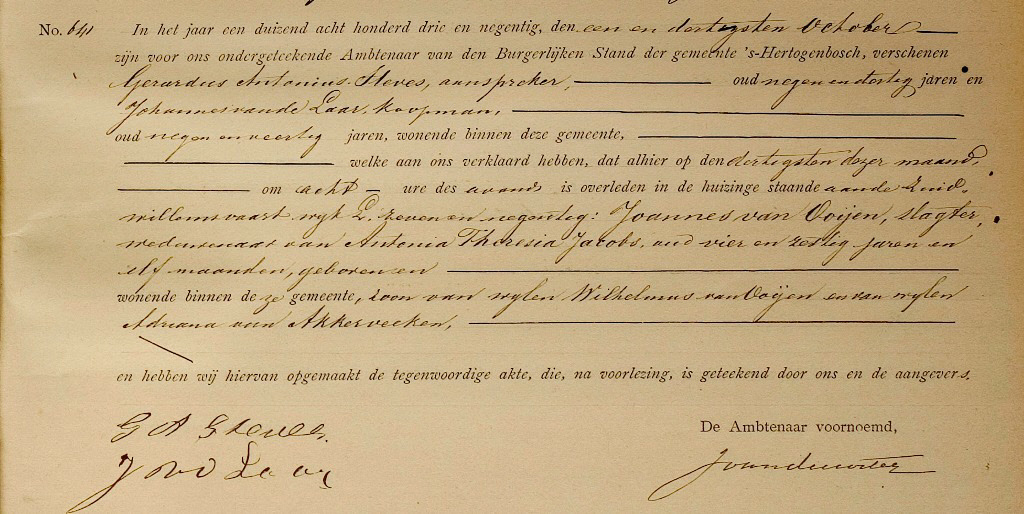 No. 641 In het jaar een duizend acht honderd drie en negentig, den een en dertigsten October
zijn voor ons ondergeteekende Ambtenaar van den Burgerlijken Stand der gemeente 's-Hertogenbosch, verschenen
Gerardus Antonius Steves, aanspreker, oud negen en dertig jaren en
Johannes van de Laar, koopman,
oud negen en veertig jaren, wonende binnen deze gemeente,
welke aan ons verklaard hebben, dat alhier op den dertigsten dezer maand,
om acht ure des avonds is overleden in de huizinge staande aan de Zuid-
willemsvaart wyk L. zeven en negentig: Joannes van Ooijen, slagter,
weduwenaar van Antonia Theresia Jacobs, oud vier en zestig jaren en
elf maanden, geboren en
wonende binnen deze gemeente, zoon van wylen Wilhelmus van Ooijen en van wylen
Adriana van Akkerveeken,
en hebben wij hiervan opgemaakt de tegenwoordige akte, die, na voorlezing, is geteekend door ons en de aangevers.
De Ambtenaar voornoemd,
G A Steves.
J v d Laar